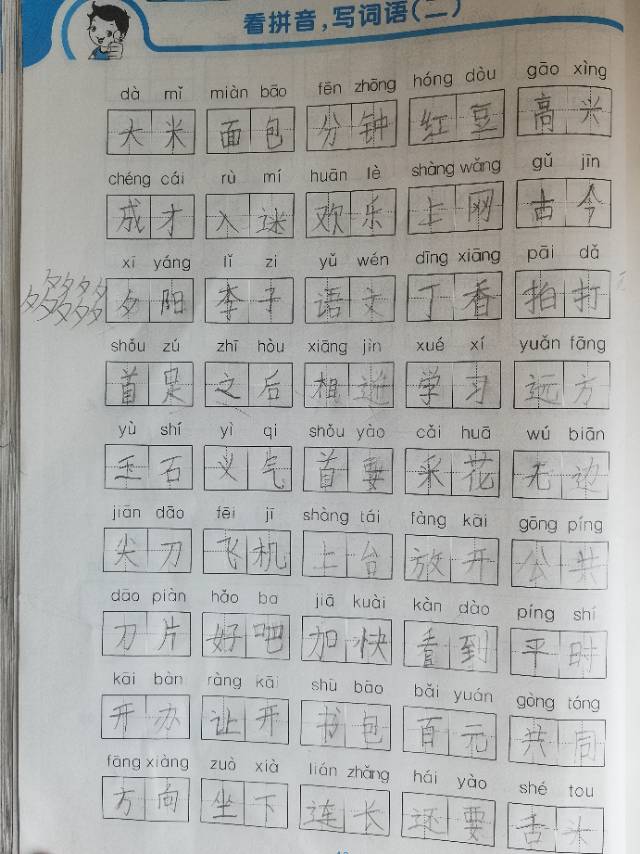 看拼音，写词语(二)
dà mǐ miàn bāo fēn zhōng hóng dòu gāo xìng
大米 面包 分钟 红豆 高兴
chéng cái rù mí huān lè shàng wǎng gǔ jīn
成才 入迷 欢乐 上网 古今
xī yáng lǐ zi yǔ wén dīng xiāng pāi dǎ
夕阳 李子 语文 丁香 拍打
shǒu zú zhī hòu xiāng jìn xué xí yuǎn fāng
首足 之后 相近 学习 远方
yù shí yì qi shǒu yào cǎi huā wú biān
玉石 义气 首要 采花 无边
jiān dāo fēi jī shàng tái fàng kāi gōng píng
尖刀 飞机 上台 放开 公共
dāo piàn hǎo ba jiā kuài kàn dào píng shí
刀片 好吧 加快 看到 平时
kāi bàn ràng kāi shū bāo bǎi yuán gòng tóng
开办 让开 书包 百元 共同
fāng xiàng zuò xià lián zhǎng hái yào shé tou
方向 坐下 连长 还要 舌头